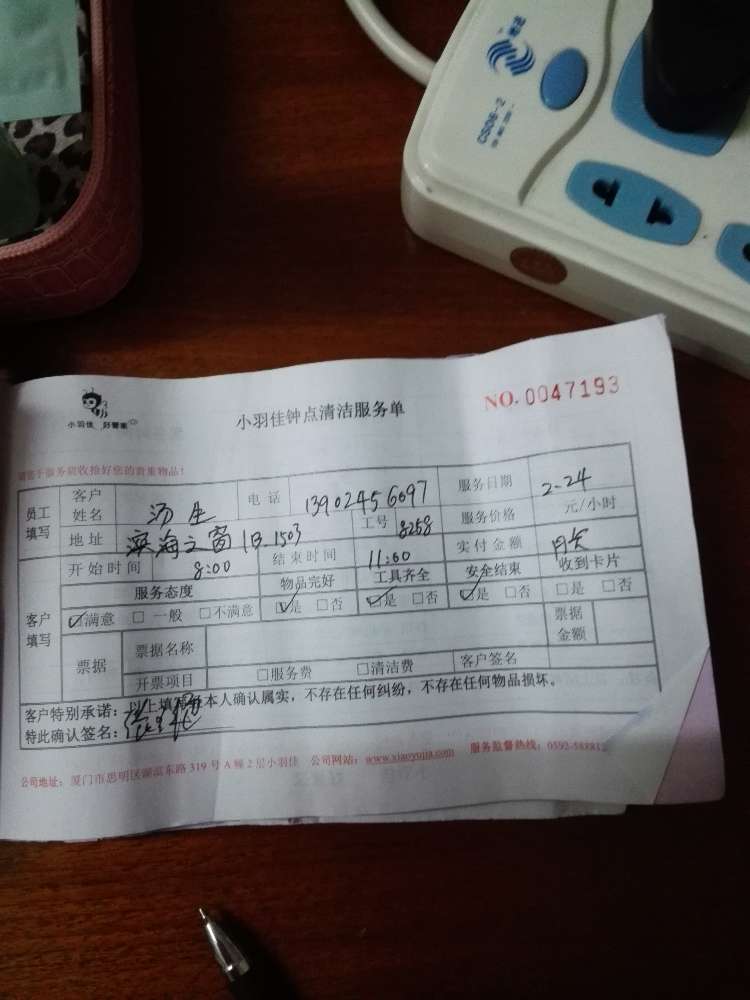 CS08-2
小羽佳 好管家
小羽佳钟点清洁服务单
NO. 0047193
请您于服务前收拾好您的贵重物品!
员工填写
客户姓名 汤生 电话 13902456697 服务日期 2-24
地址 滨海之窗1B.1503 工号 8258 服务价格 元/小时
开始时间 8:00 结束时间 11:00 实付金额 月卡
客户填写
服务态度 物品完好 工具齐全 安全结束 收到卡片
☑满意 □一般 □不满意 ☑是 □否 ☑是 □否 ☑是 □否 □是 □否
票据 票据名称 票据金额
开票项目 □服务费 □清洁费 客户签名
客户特别承诺:以上填写经本人确认属实,不存在任何纠纷,不存在任何物品损坏。
特此确认签名:
公司地址:厦门市思明区湖滨东路 319 号 A 幢 2 层小羽佳 公司网站:www.xiaoyujia.com 服务监督热线:0592-588812